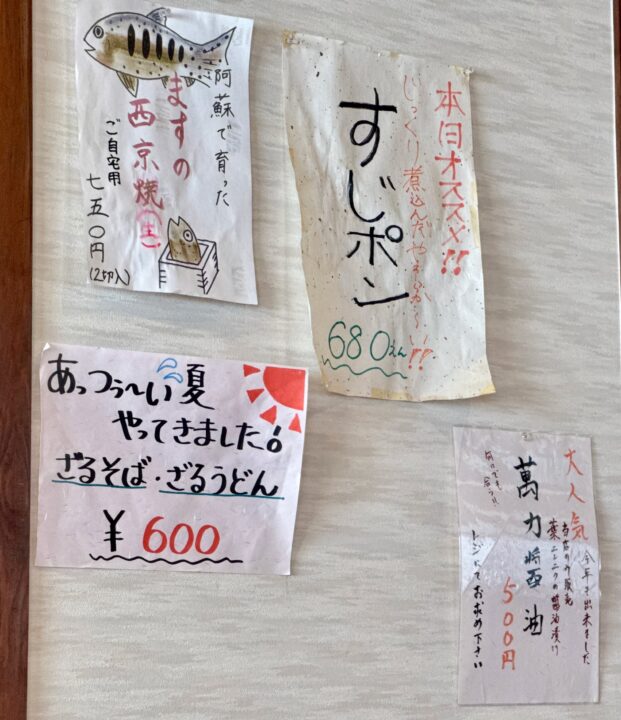 阿蘇で育った
ますの
西京焼(生)
ご自宅用
七五〇円
(2切入)
本日オススメ!!
じっくり煮込んだやわらか〜い!!
すじポン
680えん
あっつぅ〜い夏
やってきました!
ざるそば・ざるうどん
¥600
大人気
今年も出来ました
当店のみ販売
葉ニンニクの醤油漬け
萬力醤油
500円
何にでも
合う!!
レジにてお求め下さい